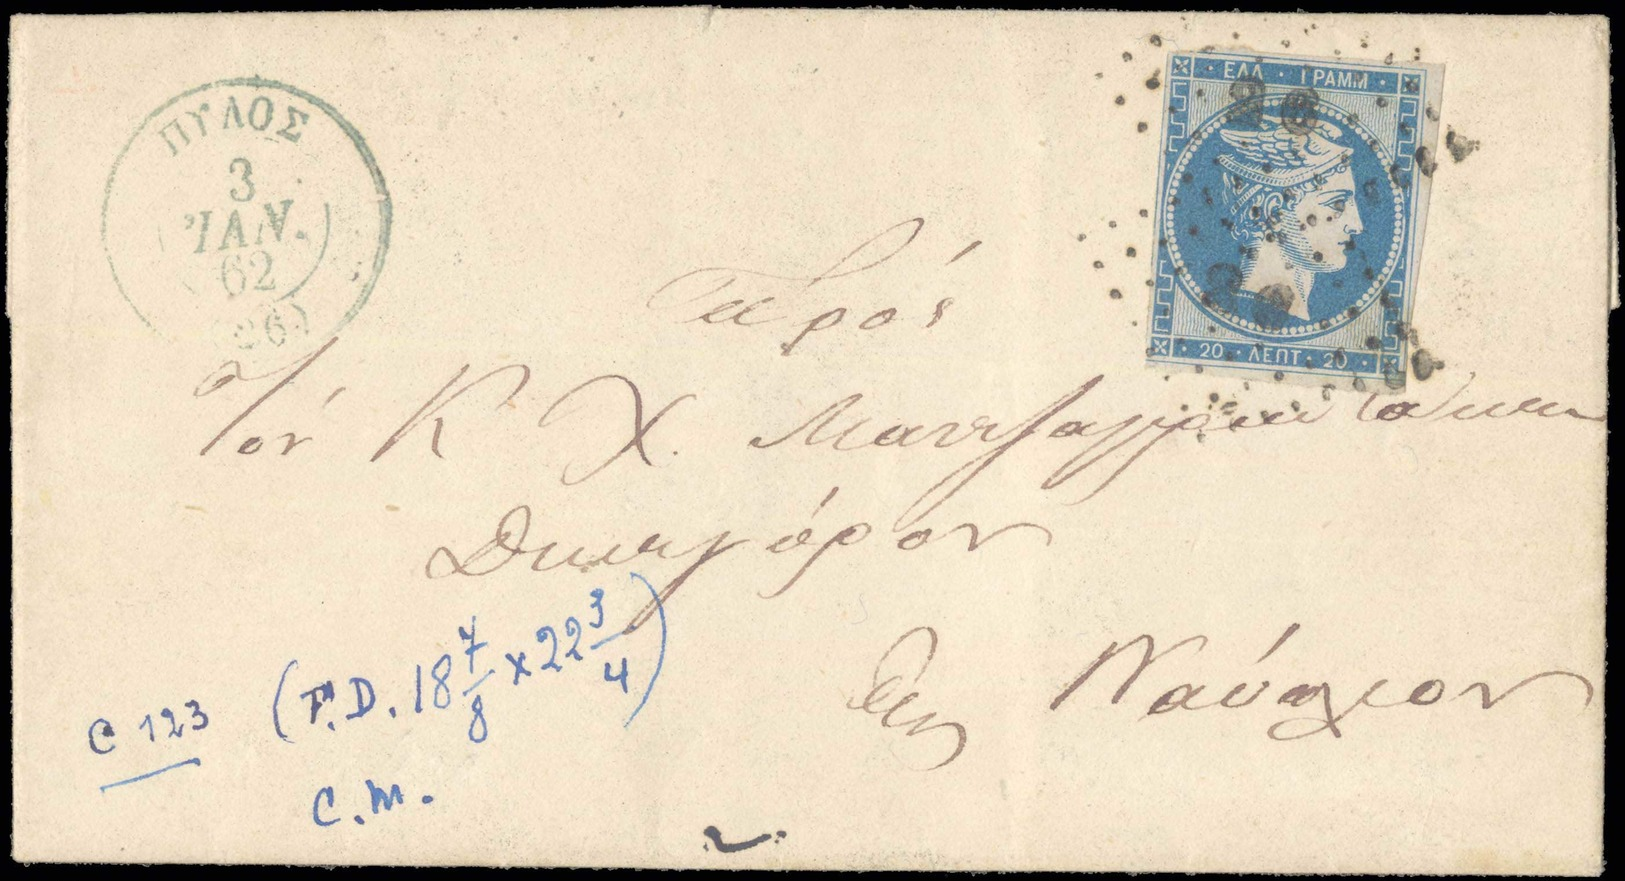 ΠΥΛΟΣ
3
ἸΑΝ.
62
(26)
ΕΛΛ · ΓΡΑΜΜ
26
26
20 · ΛΕΠΤ · 20
Πρός
Τόν Κ Χ.
Δικηγόρον
Εις Ναύπλιον
C 123 (F.D. 18 7/8 x 22 3/4)
C.M.